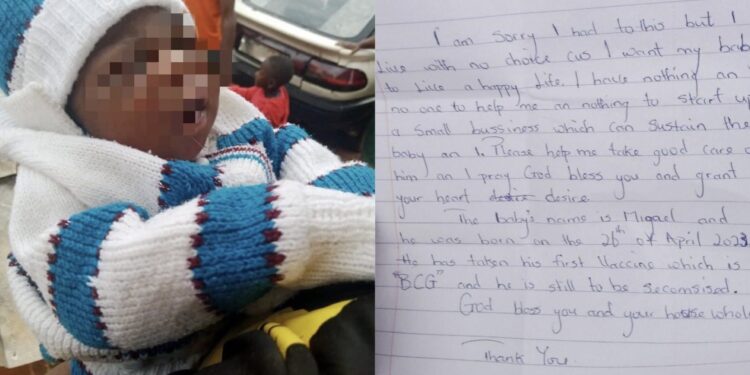 I am sorry I had to this but I
live with no choice cus I want my bab
to live a happy life. I have nothing an
no one to help me an nothing to start up
a small bussiness which can sustain the
baby an I. Please help me take good care o
him an I pray God bless you and grant
your heart desire desire.
The baby's name is Miguel and
he was born on the 26th of April 2023
He has taken his first Vaccine which is
"BCG" and he is still to be secomsised.
God bless you and your house whole
Thank You